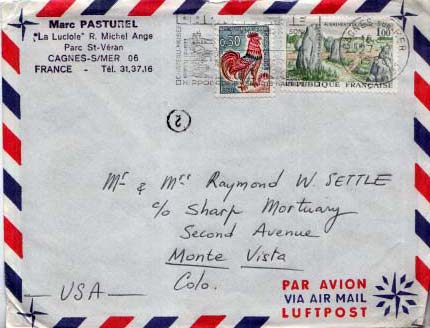 Marc PASTUREL
"La Luciole" R. Michel Ange
Parc St-Véran
CAGNES-S/MER 06
FRANCE - Tél. 31.37.16
0,50
1,00
REPUBLIQUE FRANÇAISE
2
Mr & Mrs Raymond W. SETTLE
c/o Sharp Mortuary
Second Avenue
Monte Vista
Colo.
USA
PAR AVION
VIA AIR MAIL
LUFTPOST